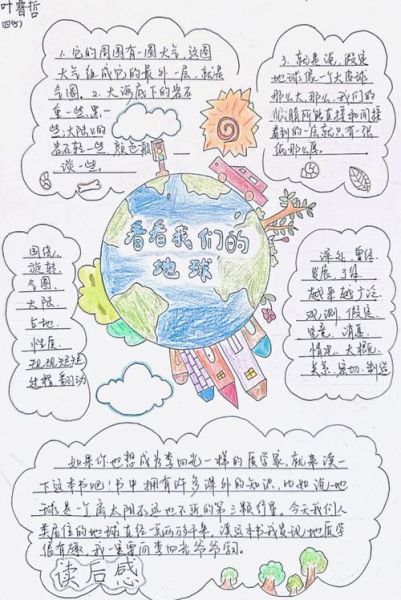 叶睿哲
1. 它的周围有一圈大气,这圈
大气组成它的最外一层,就是
气圈。2. 大海底下的岩石
重一些,黑一
些,大陆上的
岩石轻一些,颜色
淡一些。
3. 就是说,假定
地球像一个大皮球
那么大,那么,我们的
眼睛所能直接和间接
看到的一层就只有一张
纸那么厚。
看看我们的
地球
围绕、
旋转、
气圈、
大陆、
占地、
性质、
深处、曾经、
发展、了解、
越来越广泛、
观测、假定、
消息、
情况、大概、
关系、密切、制造
如果你也想成为李四光一样的医学家,就来读一
下这本书吧!书中拥有许多课外的知识,比如说:地
球是一个离太阳不远也不近的第三颗行星。今天我们人
类居住的地球直径一万两千米。读这本书我发现地质学
很有趣,我一定要向李四光爷爷学习。
读后感